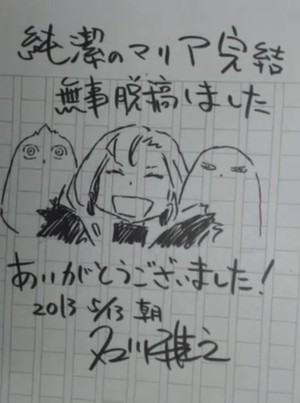 純潔のマリア完結
無事脱稿しました
ありがとうございました!
2013 5/13 朝
石川雅之